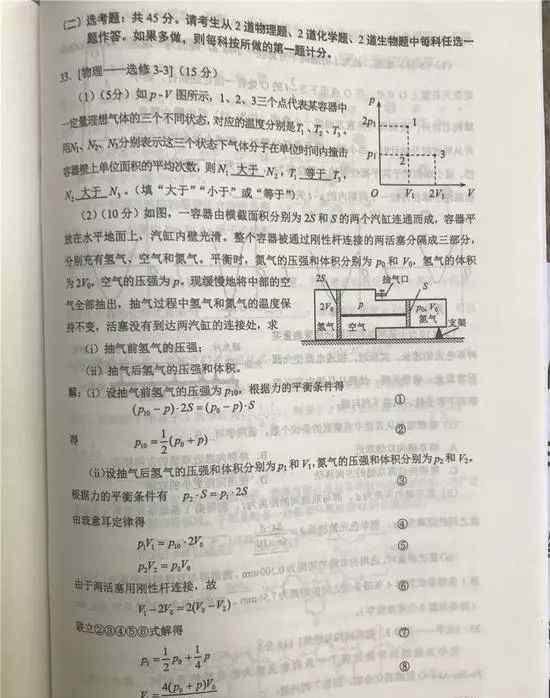 (二) 选考题：共 45 分。请考生从 2 道物理题、2 道化学题、2 道生物题中每科任选一
题作答。如果多做，则每科按所做的第一题计分。
33. [物理——选修 3-3]（15 分）
(1)（5分）如 p-V 图所示，1、2、3三个点代表某容器中
一定量理想气体的三个不同状态，对应的温度分别是T₁、T₂、T₃。
用N₁、N₂、N₃分别表示这三个状态下气体分子在单位时间内撞击
容器壁上单位面积的平均次数，则 N₁ 大于 N₂，T₁ 等于 T₃，
N₂ 大于 N₃。（填“大于”“小于”或“等于”）
p
2p₁
1
p₁
2
3
O
V₁
2V₁
V
(2)（10 分）如图，一容器由横截面积分别为 2S 和 S 的两个汽缸连通而成，容器平
放在水平地面上，汽缸内壁光滑。整个容器被通过刚性杆连接的两活塞分隔成三部分，
分别充有氢气、空气和氮气。平衡时，氮气的压强和体积分别为 p₀ 和 V₀，氢气的体积
为 2V₀，空气的压强为 p。现缓慢地将中部的空
气全部抽出，抽气过程中氢气和氮气的温度保
持不变，活塞没有到达两汽缸的连接处，求
(i) 抽气前氢气的压强；
(ii) 抽气后氢气的压强和体积。
2S
抽气口
S
2V₀
p
p₀, V₀
氢气
空气
氮气
支架
解：(i) 设抽气前氢气的压强为 p₁₀，根据力的平衡条件得
(p₁₀ − p)·2S = (p₀ − p)·S ①
得 p₁₀ = 1/2 (p₀ + p) ②
(ii)设抽气后氢气的压强和体积分别为 p₁ 和 V₁，氮气的压强和体积分别为 p₂ 和 V₂。
根据力的平衡条件有 p₂·S = p₁·2S ③
由玻意耳定律得
p₁V₁ = p₁₀·2V₀ ④
p₂V₂ = p₀V₀ ⑤
由于两活塞用刚性杆连接，故
V₁ − 2V₀ = 2(V₀ − V₂) ⑥
联立②③④⑤⑥式解得
p₁ = 1/2 p₀ + 1/4 p ⑦
V₁ = 4(p₀ + p)V₀ ⑧